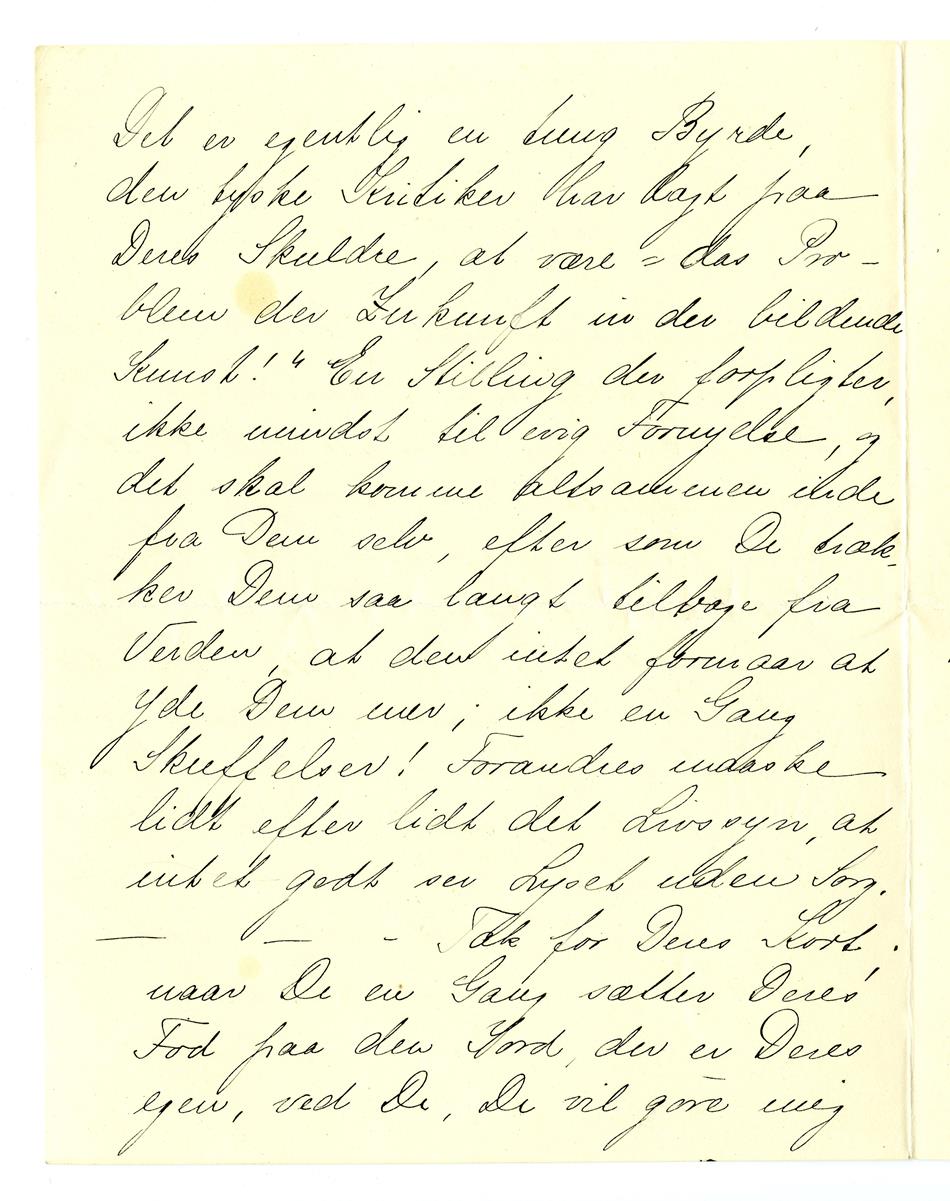 Det er egentlig en tung Byrde,
den tyske Kritiker har lagt paa
Deres Skuldre, at være = das Pro-
blem der Zukunft in der bildende
Kunst!" En Stilling der forpligter,
ikke mindst til evig Fornyelse, og
det skal komme altsammen inde
fra Dem selv, efter som De træk-
ker Dem saa langt tilbage fra
Verden, at den intet formaar at
yde Dem mer; ikke en Gang
Skuffelser! Forandres maaske
lidt efter lidt det Livssyn, at
intet godt ser Lyset uden Sorg.
— — - Tak for Deres Kort,
naar De en Gang sætter Deres
Fod paa den Jord, der er Deres
egen, ved De, De vil gøre mig